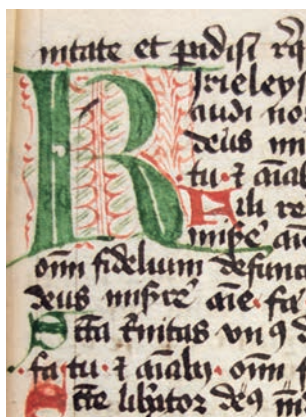 nitate et padisi rq
Kyrieley
audi no
deus mi
tu · ⁊ aiab
Fili re
misere ai
omi fidelium defunc
deus misere aie · fa
Scta trinitas un9 d
fa · tu · ⁊ aiaby · omi f
Scte libator de9 m